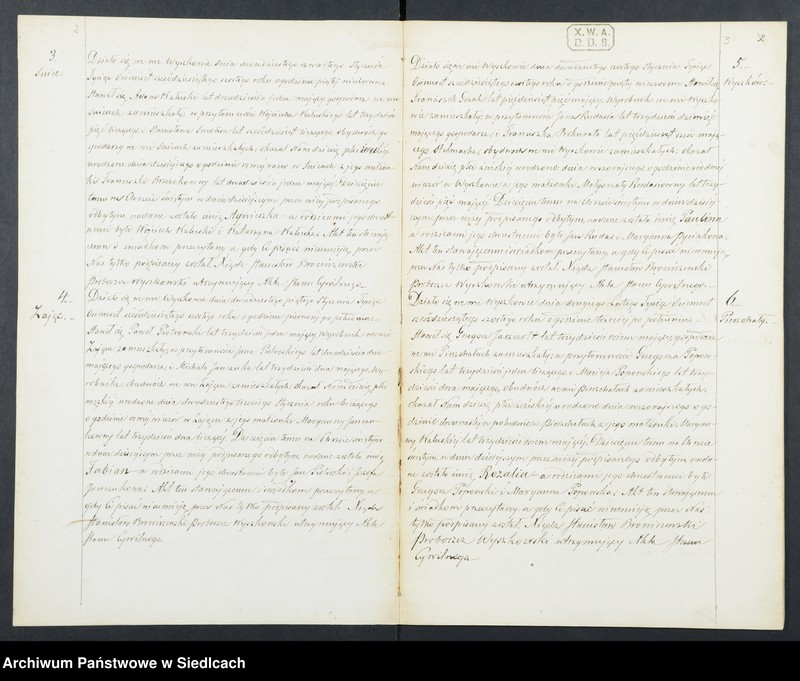 2
3.
Śnice.
Działo się we wsi Wyszkowie dnia dwudziestego czwartego Stycznia
Tysiąc ośmset sześćdziesiątego szóstego roku o godzinie piątej wieczorem
Stawił się Adam Kaluski lat dwadzieścia jeden mający gospodarz we wsi
Śnicach zamieszkały, w przytomności Wojciecha Kaluskiego lat trzydzieści
pięć liczącego, i Stanisława lat sześćdziesiąt liczącego obydwóch go-
spodarzy we wsi Śnicach zamieszkałych, okazał Nam dziecię płci żeńskiej
urodzone dnia dzisiejszego o godzinie ósmej rano w Śnicach z jego małżon-
ki Franciszki lat dwadzieścia jeden mającej. Dziecięciu
temu na Chrzcie świętym w dniu dzisiejszym przez niżej podpisanego
odbytym nadane zostało imię Agnieszka a rodzicami jego chrzest-
nemi byli Wojciech Kaluski i Katarzyna Kaluska. Akt ten stawają-
cemu i świadkom przeczytany a gdy ci pisać nieumieją, przez
Nas tylko podpisany został. Xiądz Stanisław Broniszewski
Proboszcz Wyszkowski utrzymujący Akta Stanu Cywilnego.
4.
Zając.
Działo się we wsi Wyszkowie dnia dwudziestego piątego Stycznia Tysiąc
ośmset sześćdziesiątego szóstego roku o godzinie pierwszej po południu
Stawił się Paweł Piotrowski lat trzydzieści jeden mający Wyrobnik we wsi
Zającu zamieszkały, w przytomności Jana Piotrowskiego lat dwadzieścia dwa
mającego gospodarza, i Michała Janczuka lat trzydzieści dwa mającego Wy-
robnika obudwóch we wsi Zającu zamieszkałych, okazał Nam dziecię płci
męzkiej urodzone dnia dwudziestego trzeciego Stycznia roku bieżącego
o godzinie ósmej wieczór w Zającu z jego małżonki Maryanny
lat trzydzieści dwa liczącej. Dziecięciu temu na Chrzcie świętym
w dniu dzisiejszym przez niżej podpisanego odbytym nadane zostało imię
Fabian a rodzicami jego chrzestnemi byli Jan i Józefa
Akt ten stawającemu i świadkom przeczytany a
gdy ci pisać nieumieją, przez Nas tylko podpisany został. Xiądz
Stanisław Broniszewski Proboszcz Wyszkowski utrzymujący Akta
Stanu Cywilnego.
X. W. A.
D. D. S.
3
2
5.
Wyszków.
Działo się we wsi Wyszkowie dnia dwudziestego szóstego Stycznia Tysiąc
ośmset sześćdziesiątego szóstego roku o godzinie piątej wieczorem Stawił się
Franciszek lat pięćdziesiąt pięć mający, Wyrobnik we wsi Wyszko-
wie zamieszkały, w przytomności Jana lat trzydzieści dziewięć
mającego gospodarza i Franciszka lat pięćdziesiąt mają-
cego Stelmacha, obydwóch we wsi Wyszkowie zamieszkałych, okazał
Nam dziecię płci żeńskiej urodzone dnia wczorajszego o godzinie siódmej
wieczór w Wyszkowie z jego małżonki Małgorzaty lat trzy-
dzieści pięć mającej. Dziecięciu temu na Chrzcie świętym w dniu dzisiej-
szym przez niżej podpisanego odbytym, nadane zostało imię Paulina
a rodzicami jego chrzestnemi byli Jan i Maryanna
Akt ten stawającemu i świadkom przeczytany, a gdy ci pisać nieumieją,
przez Nas tylko podpisany został. Xiądz Stanisław Broniszewski
Proboszcz Wyszkowski utrzymujący Akta Stanu Cywilnego.
6
Pierzchały.
Działo się we wsi Wyszkowie dnia drugiego Lutego Tysiąc ośmset
sześćdziesiątego szóstego roku o godzinie trzeciej po południu
Stawił się Grzegorz lat trzydzieści ośm mający, gospodarz
we wsi Pierzchałach zamieszkały, w przytomności Grzegorza Popow-
skiego lat trzydzieści jeden liczącego i Macieja Popowskiego lat trzy-
dzieści dwa mającego, obudwóch we wsi Pierzchałach zamieszkałych,
okazał Nam dziecię płci żeńskiej urodzone dnia wczorajszego o go-
dzinie dwunastej w południe w Pierzchałach z jego małżonki Maryan-
ny Kaluskiej lat trzydzieści ośm mającej. Dziecięciu temu na Chrzcie
świętym w dniu dzisiejszym przez niżej podpisanego odbytym nada-
ne zostało imię Rozalia a rodzicami jego chrzestnemi byli
Grzegorz Popowski i Maryanna Popowska. Akt ten stawającemu
i świadkom przeczytany a gdy ci pisać nieumieją, przez Nas
tylko podpisany został. Xiądz Stanisław Broniszewski
Proboszcz Wyszkowski utrzymujący Akta Stanu
Cywilnego.
Archiwum Państwowe w Siedlcach